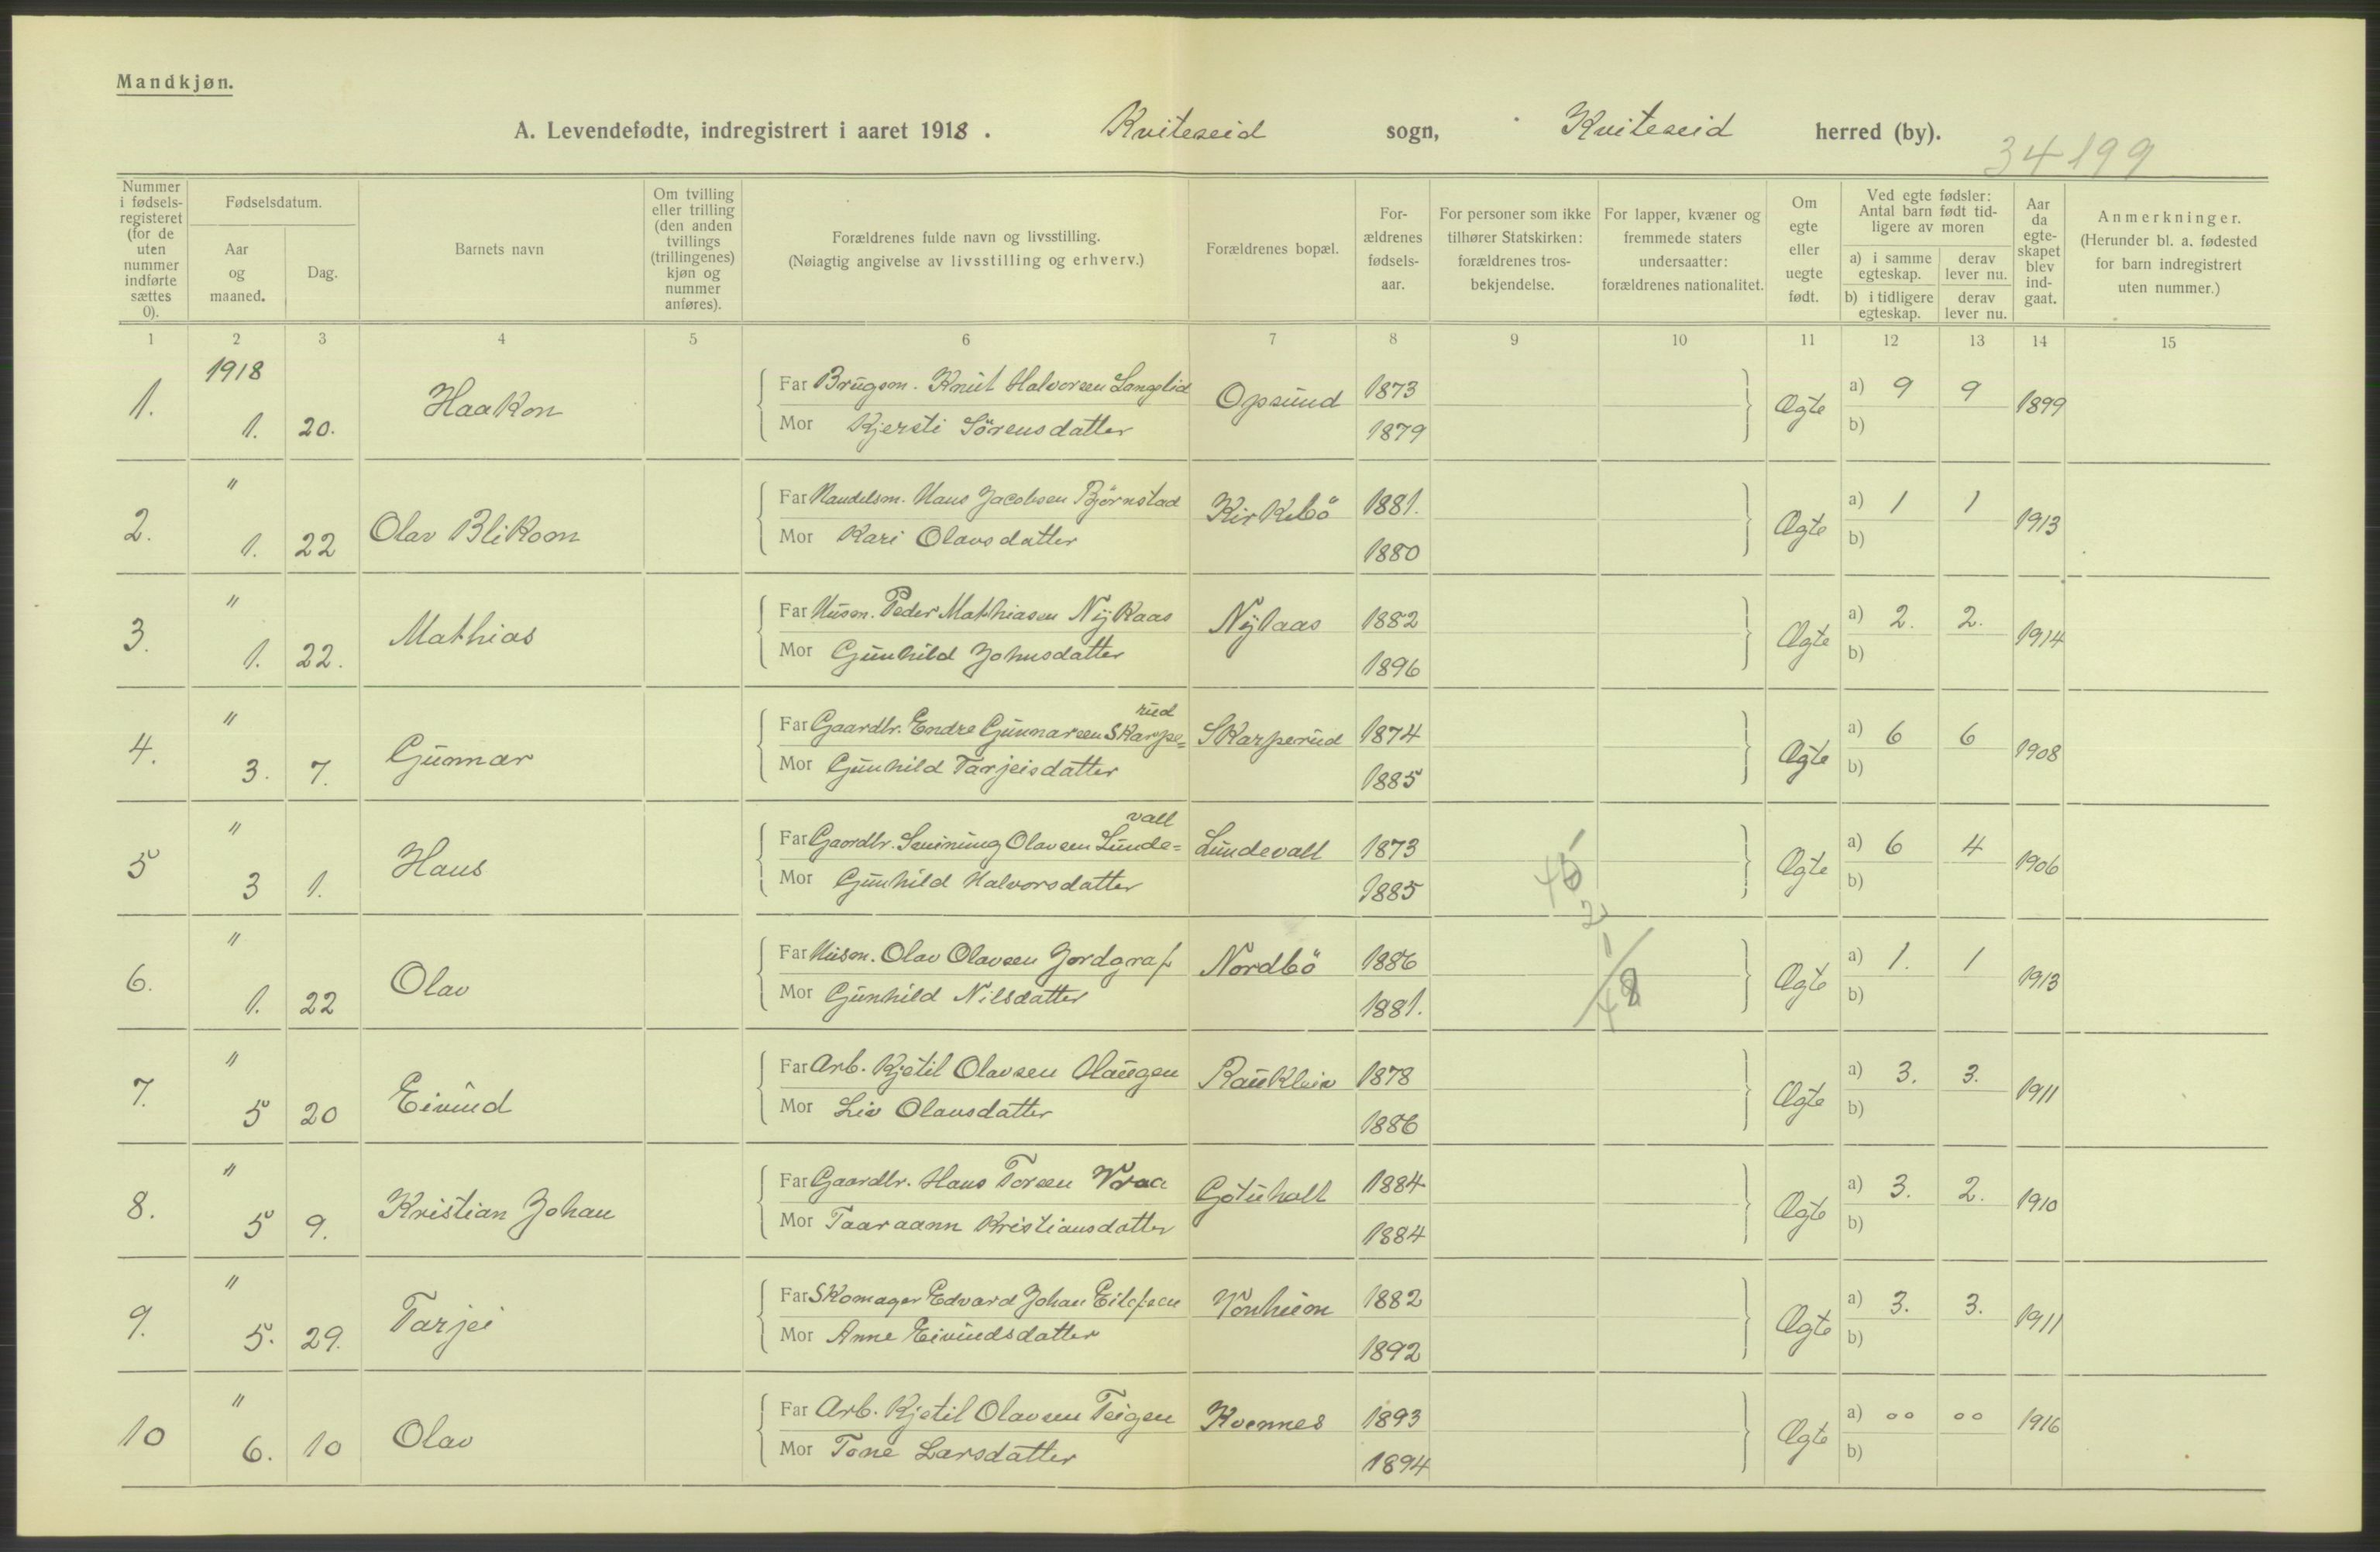 Mandkjøn.
A. Levendefødte, indregistrert i aaret 1918. Kviteseid sogn, Kviteseid herred (by).
34199
Nummer i fødsels-registeret (for de uten nummer indførte sættes 0).
Fødselsdatum.
Aar og maaned.
Dag.
Barnets navn
Om tvilling eller trilling (den anden tvillings (trillingenes) kjøn og nummer anføres).
Forældrenes fulde navn og livsstilling.
(Nøiagtig angivelse av livsstilling og erhverv.)
Forældrenes bopæl.
For-ældrenes fødsels-aar.
For personer som ikke tilhører Statskirken: forældrenes tros-bekjendelse.
For lapper, kvæner og fremmede staters undersaatter: forældrenes nationalitet.
Om egte eller uegte født.
Ved egte fødsler: Antal barn født tid-ligere av moren
a) i samme egteskap.
derav lever nu.
b) i tidligere egteskap.
derav lever nu.
Aar da egte-skapet blev ind-gaat.
Anmerkninger.
(Herunder bl. a. fødested for barn indregistrert uten nummer.)
1 2 3 4 5 6 7 8 9 10 11 12 13 14 15
1918
1. 1. 20. Haakon Far Brugsm. Knut Halvorsen Langelid Opsund 1873 Ægte a) 9 9 1899
Mor Kjersti Sörensdatter 1879 b)
"
2. 1. 22 Olav Blikom Far Handelsm. Hans Jacobsen Björnstad Kirkebö 1881. Ægte a) 1 1 1913
Mor Kari Olavsdatter 1880 b)
"
3. 1. 22. Mathias Far Husm. Peder Mathiasen Nykaas Nykaas 1882 Ægte a) 2. 2. 1914
Mor Gunhild Johnsdatter 1896 b)
"
4. 3. 7. Gunnar Far Gaardbr. Endre Gunnarsen Skarpe=rud Skarperud 1874 Ægte a) 6 6 1908
Mor Gunhild Tarjeisdatter 1885 b)
"
5 3 1. Hans Far Gaardbr. Olavsen Lunde=vall Lundevall 1873 Ægte a) 6 4 1906
Mor Gunhild Halvorsdatter 1885 b)
"
6. 1. 22 Olav Far Husm. Olav Olavsen Jordgraf Nordbö 1886 Ægte a) 1. 1 1913
Mor Gunhild Nilsdatter 1881. b)
"
7. 5 20 Eivind Far Arb. Kjetil Olavsen Haugen Raukleiv 1878 Ægte a) 3. 3. 1911
Mor Liv Olavsdatter 1886 b)
"
8. 5 9. Kristian Johan Far Gaardbr. Hans Torsen Vraa Götuholt 1884 Ægte a) 3. 2. 1910
Mor Taaraann Kristiansdatter 1884 b)
"
9. 5. 29. Tarjei Far Skomager Edvard Johan Eilefsen Vonheim 1882 Ægte a) 3. 3. 1911
Mor Anne Eivindsdatter 1892 b)
"
10 6. 10 Olav Far Arb. Kjetil Olavsen Teigen Kvennes 1893 Ægte a) oo oo 1916
Mor Tone Larsdatter 1894 b)